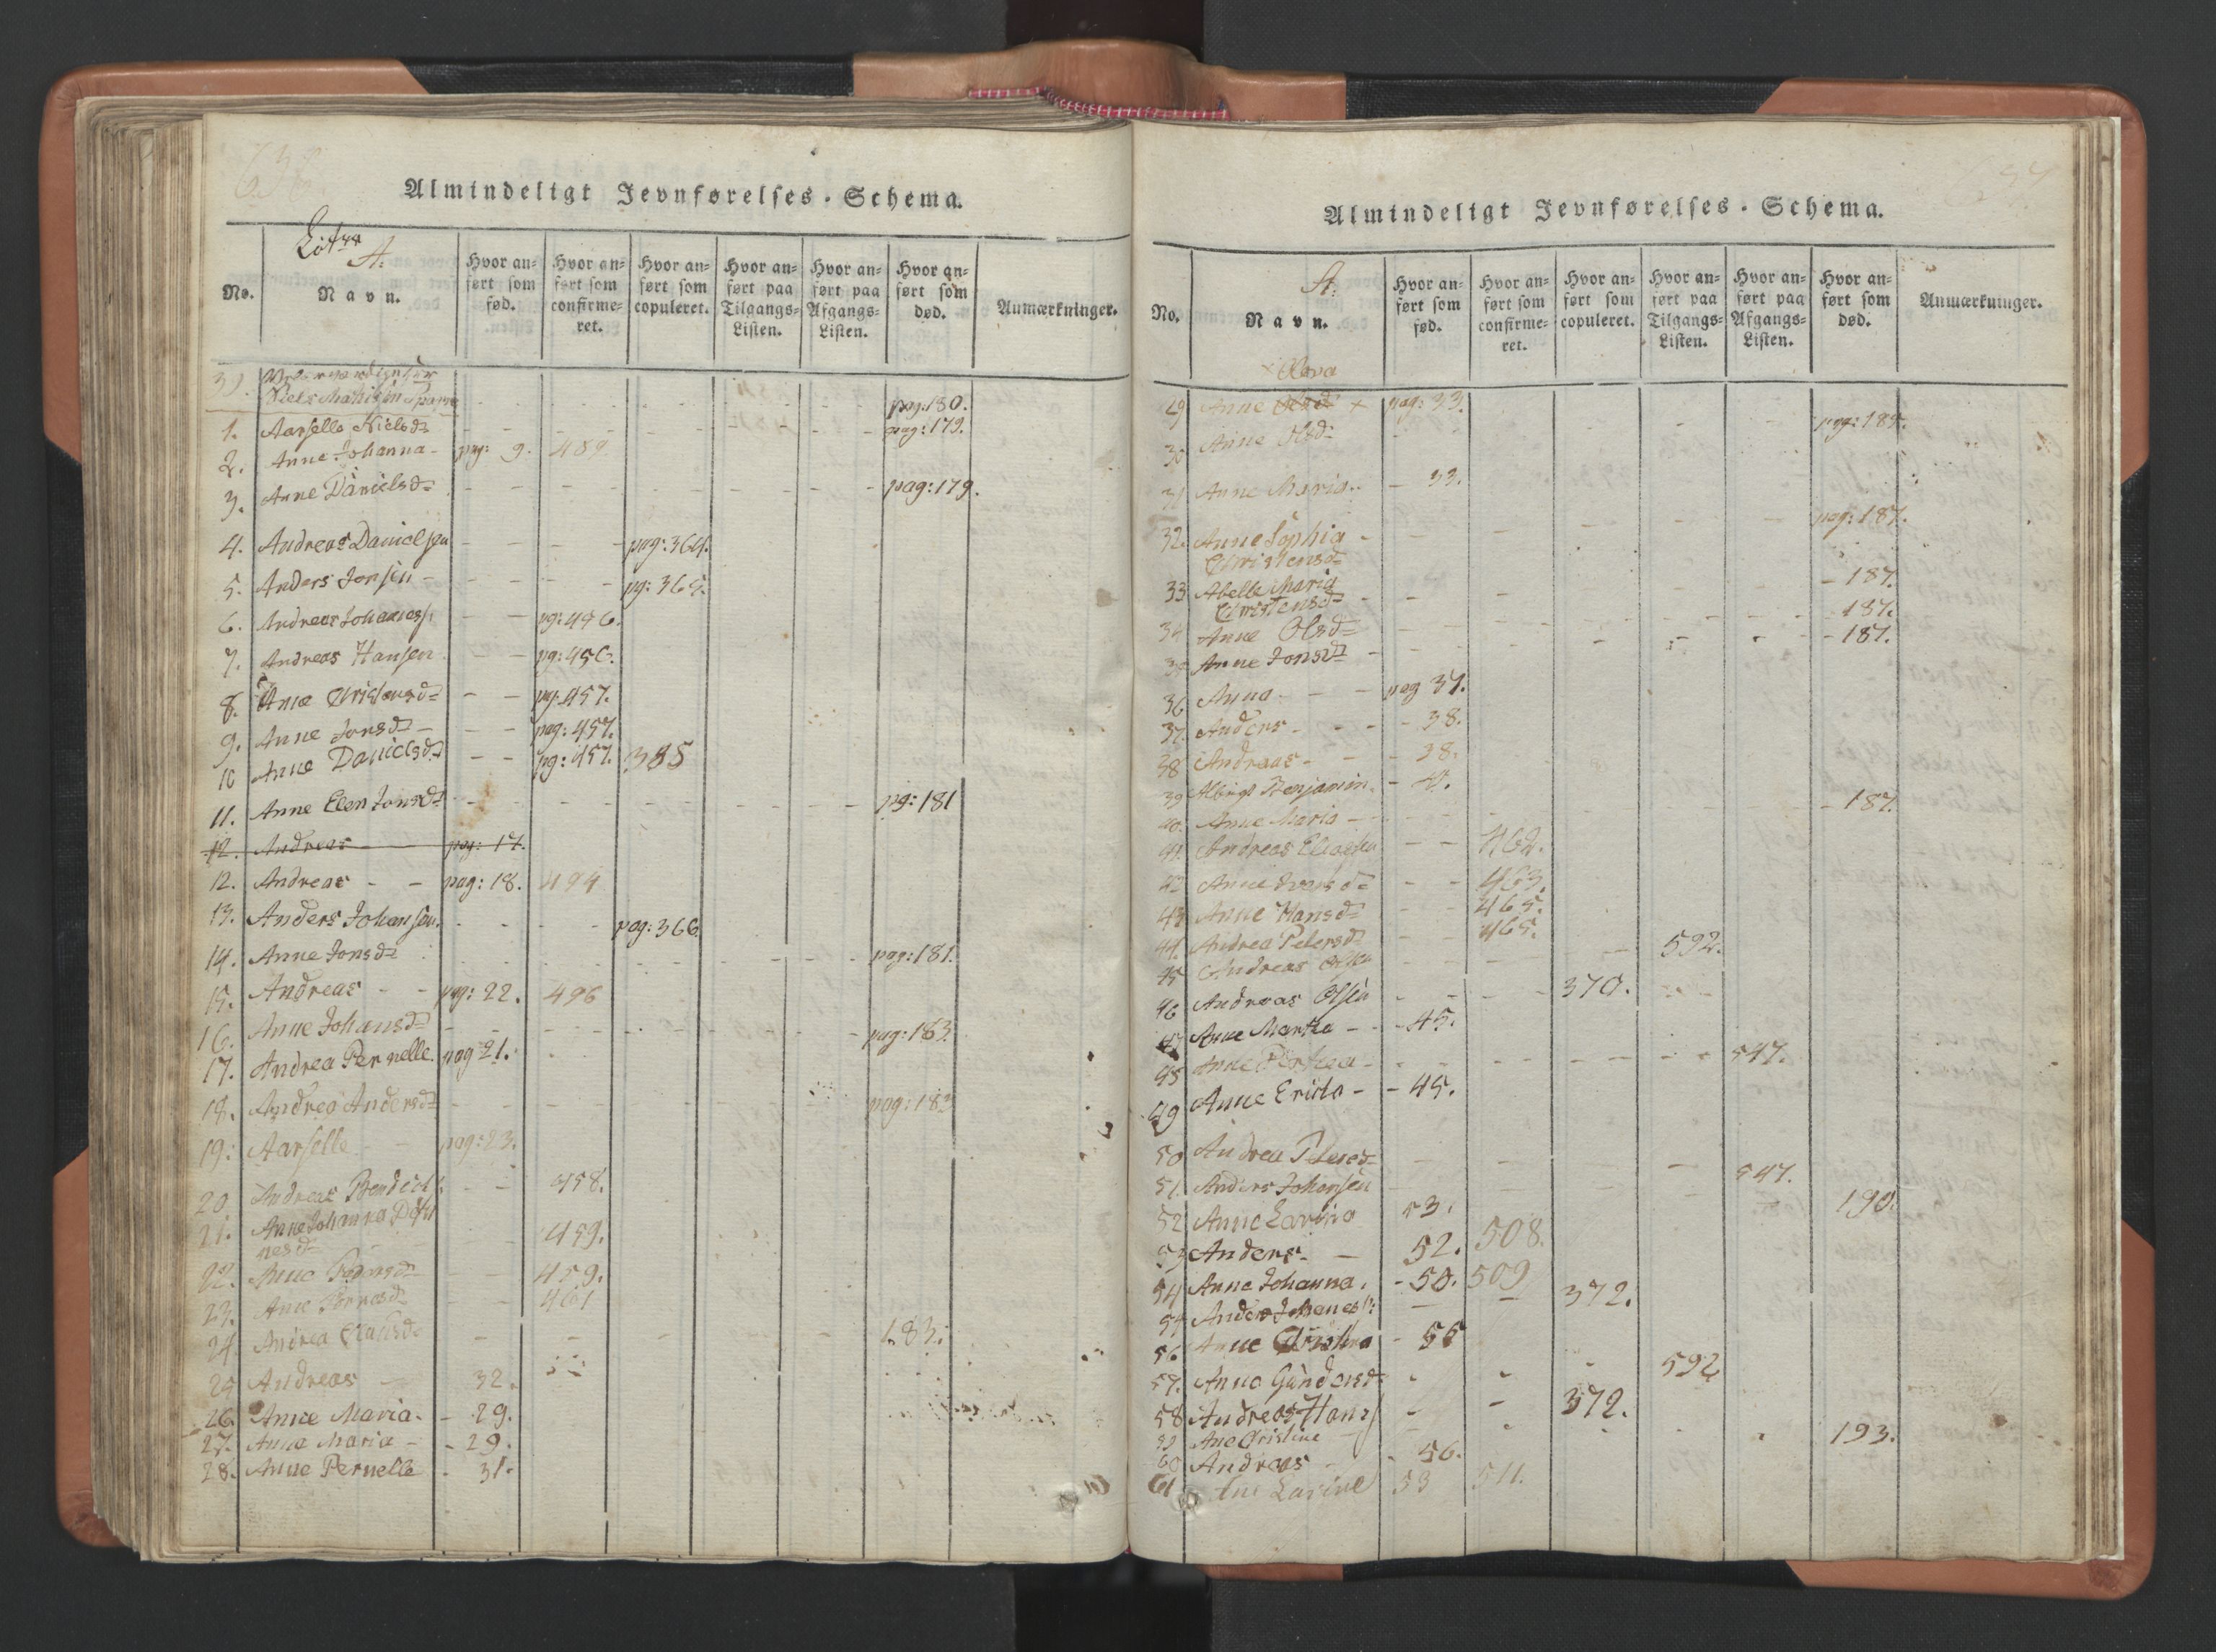 Almindeligt Jevnførelses-Schema.
Litra A.
No. Navn. Hvor anført som fød. Hvor anført som confirmeret. Hvor anført som copuleret. Hvor anført paa Tilgangs-Listen. Hvor anført paa Afgangs-Listen. Hvor anført som død. Anmærkninger.
Niels pag: 180.
1. Aarselle Nielsd- pag: 179.
2. Anne Johanna - pag: 9. 489
3. Anne Danielsd- pag: 179.
4. Andreas Danielsen pag: 364.
5. Anders Jonsen - pg: 365.
6. Andreas Johannes: pg: 456.
7. Andreas Hansen pg: 456.
8. Anne Christensd- pg: 457.
9. Anne Jonsd- pag: 457.
10 Anne Danielsd- pg: 457. 385
11. Anne Elen Jonsd- pg: 181
12. Andreas pag: 17.
12. Andreas - - pag: 18. 494
13. Anders Johansen. pag: 366
14. Anne Jonsd- pag: 181.
15. Andreas - - pag: 22. 496
16. Anne Johansd- pag: 183.
17. Andrea Pernelle. pag 21.
18. Andrea Andersd- pag: 183
19. Aarselle - pag: 23.
20. Andreas 458.
21. Anne Johanna
nesd- 459.
22. Anne Pedersd- 459.
23. Anne 461
24. Andrea 183.
25 Andreas 32.
26. Anne Maria. - 29.
27. Anne Maria - - 29.
28. Anne Pernelle - 31.
Almindeligt Jevnførelses-Schema.
A.
No. Navn. Hvor anført som fød. Hvor anført som confirmeret. Hvor anført som copuleret. Hvor anført paa Tilgangs-Listen. Hvor anført paa Afgangs-Listen. Hvor anført som død. Anmærkninger.
29 Anne Olsd- × pag: 33.
30 Anne Olsd-
31 Anne Maria.. - 33.
32. Anne Sophia - pag: 187.
Christensd-
33 Abelle Maria - 187.
Christensd-
34 Anne Olsd- 187.
35 Anne Jonsd- - 187.
36 Anna - - - pag 37.
37. Anders - - - 38.
38 Andreas - - 38.
39 Benjamin.
40. Anne Maria - - 187.
41. Andreas Eliassen - - 462.
42 Anne - - 463.
43 Anne Hansd- - - 465.
44. Andrea Petersd- - - 465.
45 Andreas Olsen 592.
46 Andreas Olsen 370.
47 Anne Martha - - 45.
48 Anne 547.
49 Anne - - 45.
50 Andrea Petersd- 547.
51. Anders Johansen 190.
52 Anne Lavina 53.
53 Anders - 52. 508.
54 Anne Johanna. - 50. 509
55 Anders Johanes: 372.
56 Anne Christina - 56
57. Anne Gundersd- 592
58 Andreas Hans: 372.
59 Ane Cristine 193.
60 Andreas - 56.
61 Ane Lavine 53 511.